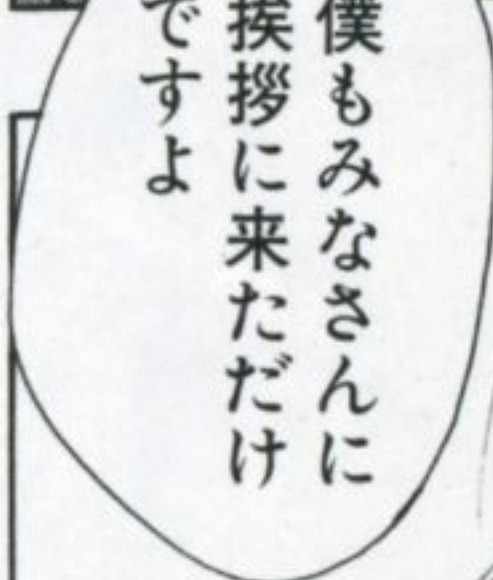 僕もみなさんに
挨拶に来ただけ
ですよ